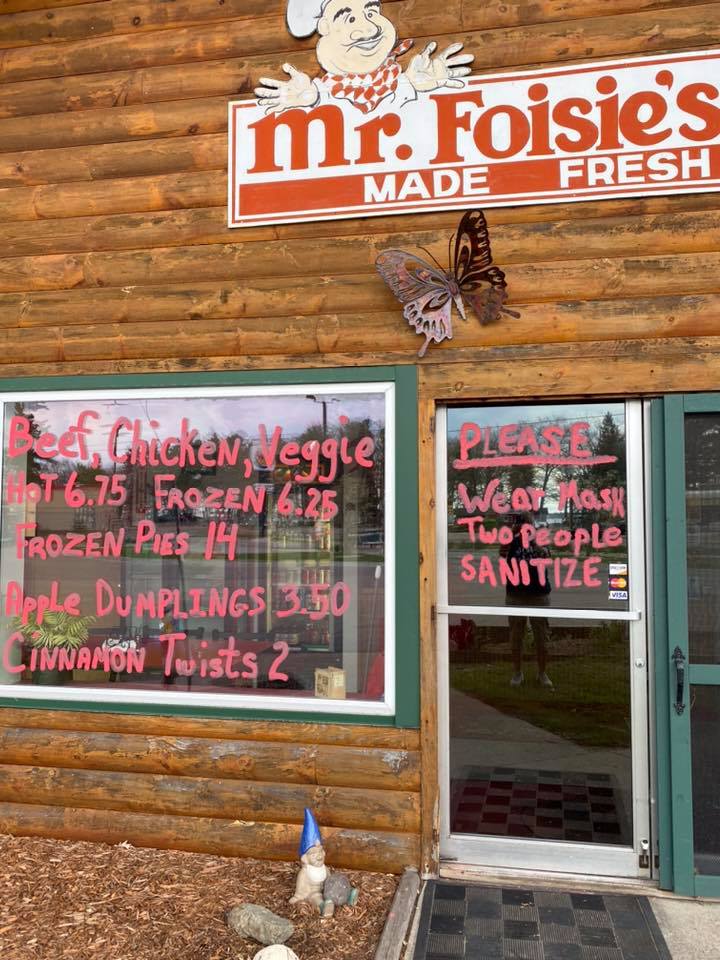 Mr. Foisie's
MADE FRESH
Beef, Chicken, Veggie
HOT 6.75 FROZEN 6.25
FROZEN PIES 14
Apple DUMPLINGS 3.50
CINNAMON Twists 2
PLEASE
Wear Mask
Two People
SANITIZE
VISA